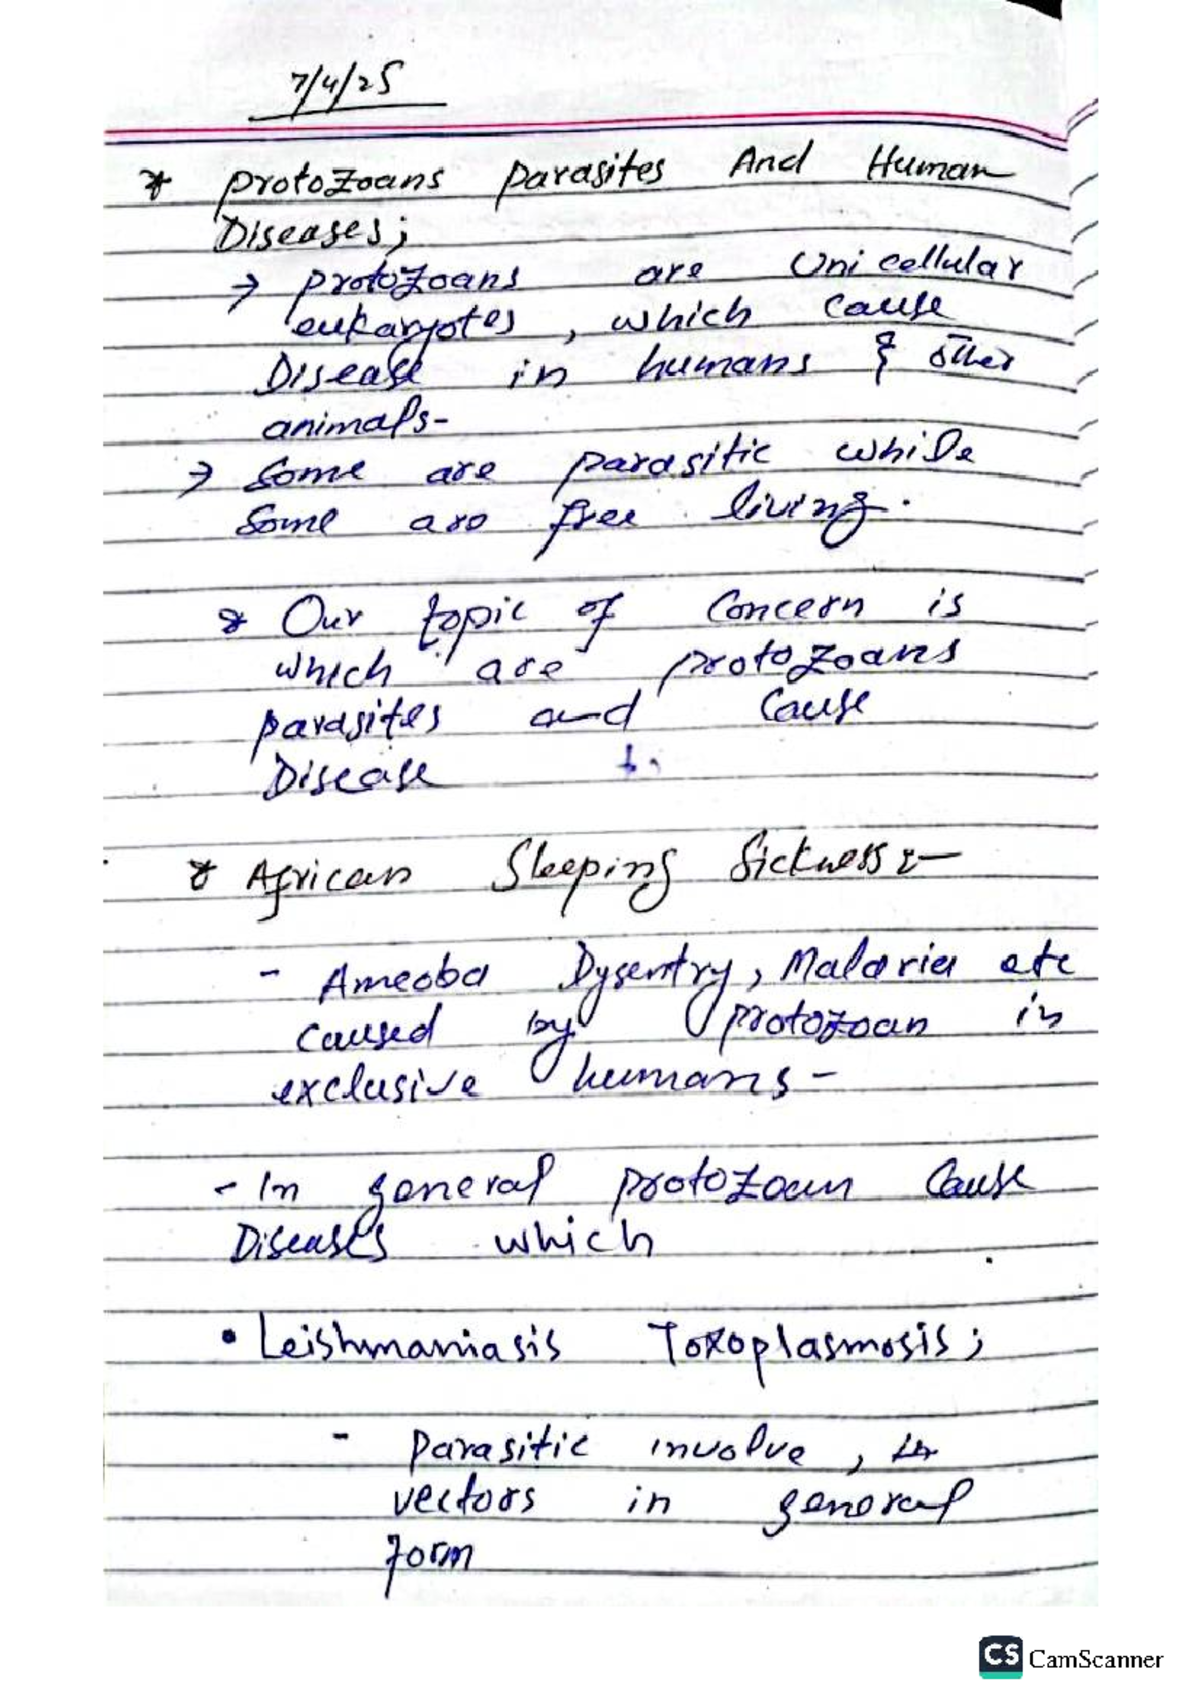 7/4/25
* Protozoans Parasites And Human
Diseases;
→ Protozoans are Unicellular
eukaryotes, which cause
Disease in humans & other
animals-
→ Some are parasitic while
Some are free living.
* Our topic of Concern is
which are protozoans
parasites and Cause
Disease
* African Sleeping Sickness:-
- Ameoba Dysentry, Malaria etc
Caused by protozoan in
exclusive humans-
- In general protozoan Cause
Diseases which
• Leishmaniasis Toxoplasmosis;
- Parasitic involve,
vectors in general
form
CS CamScanner